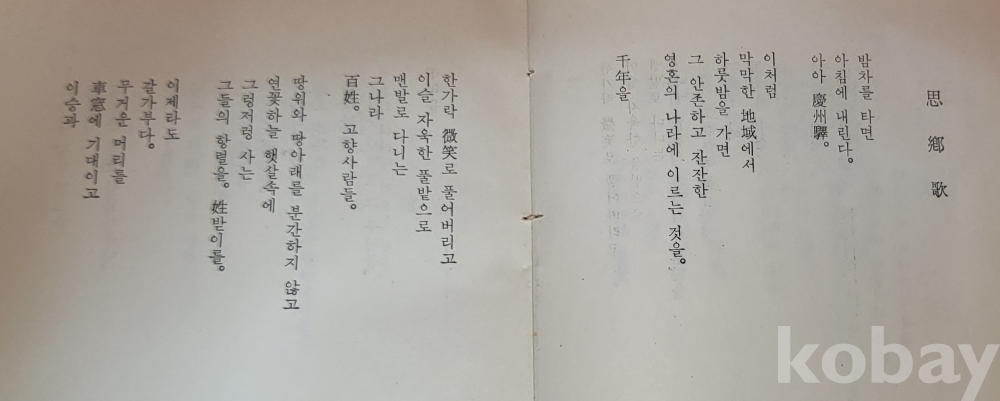 思鄕歌
밤차를 타면
아침에 내린다。
아아 慶州驛。
이처럼
막막한 地域에서
하룻밤을 가면
그 안존하고 잔잔한
영혼의 나라에 이르는 것을。
千年을
한가락 微笑로 풀어버리고
이슬 자욱한 풀밭으로
맨발로 다니는
그나라
百姓。고향사람들。
땅위와 땅아래를 분간하지 않고
연꽃하늘 햇살속에
그렁저렁 사는
그들의 항렬을。姓받이를。
이제라도
갈가부다。
무거운 머리를
車窓에 기대이고
이승과
kobay